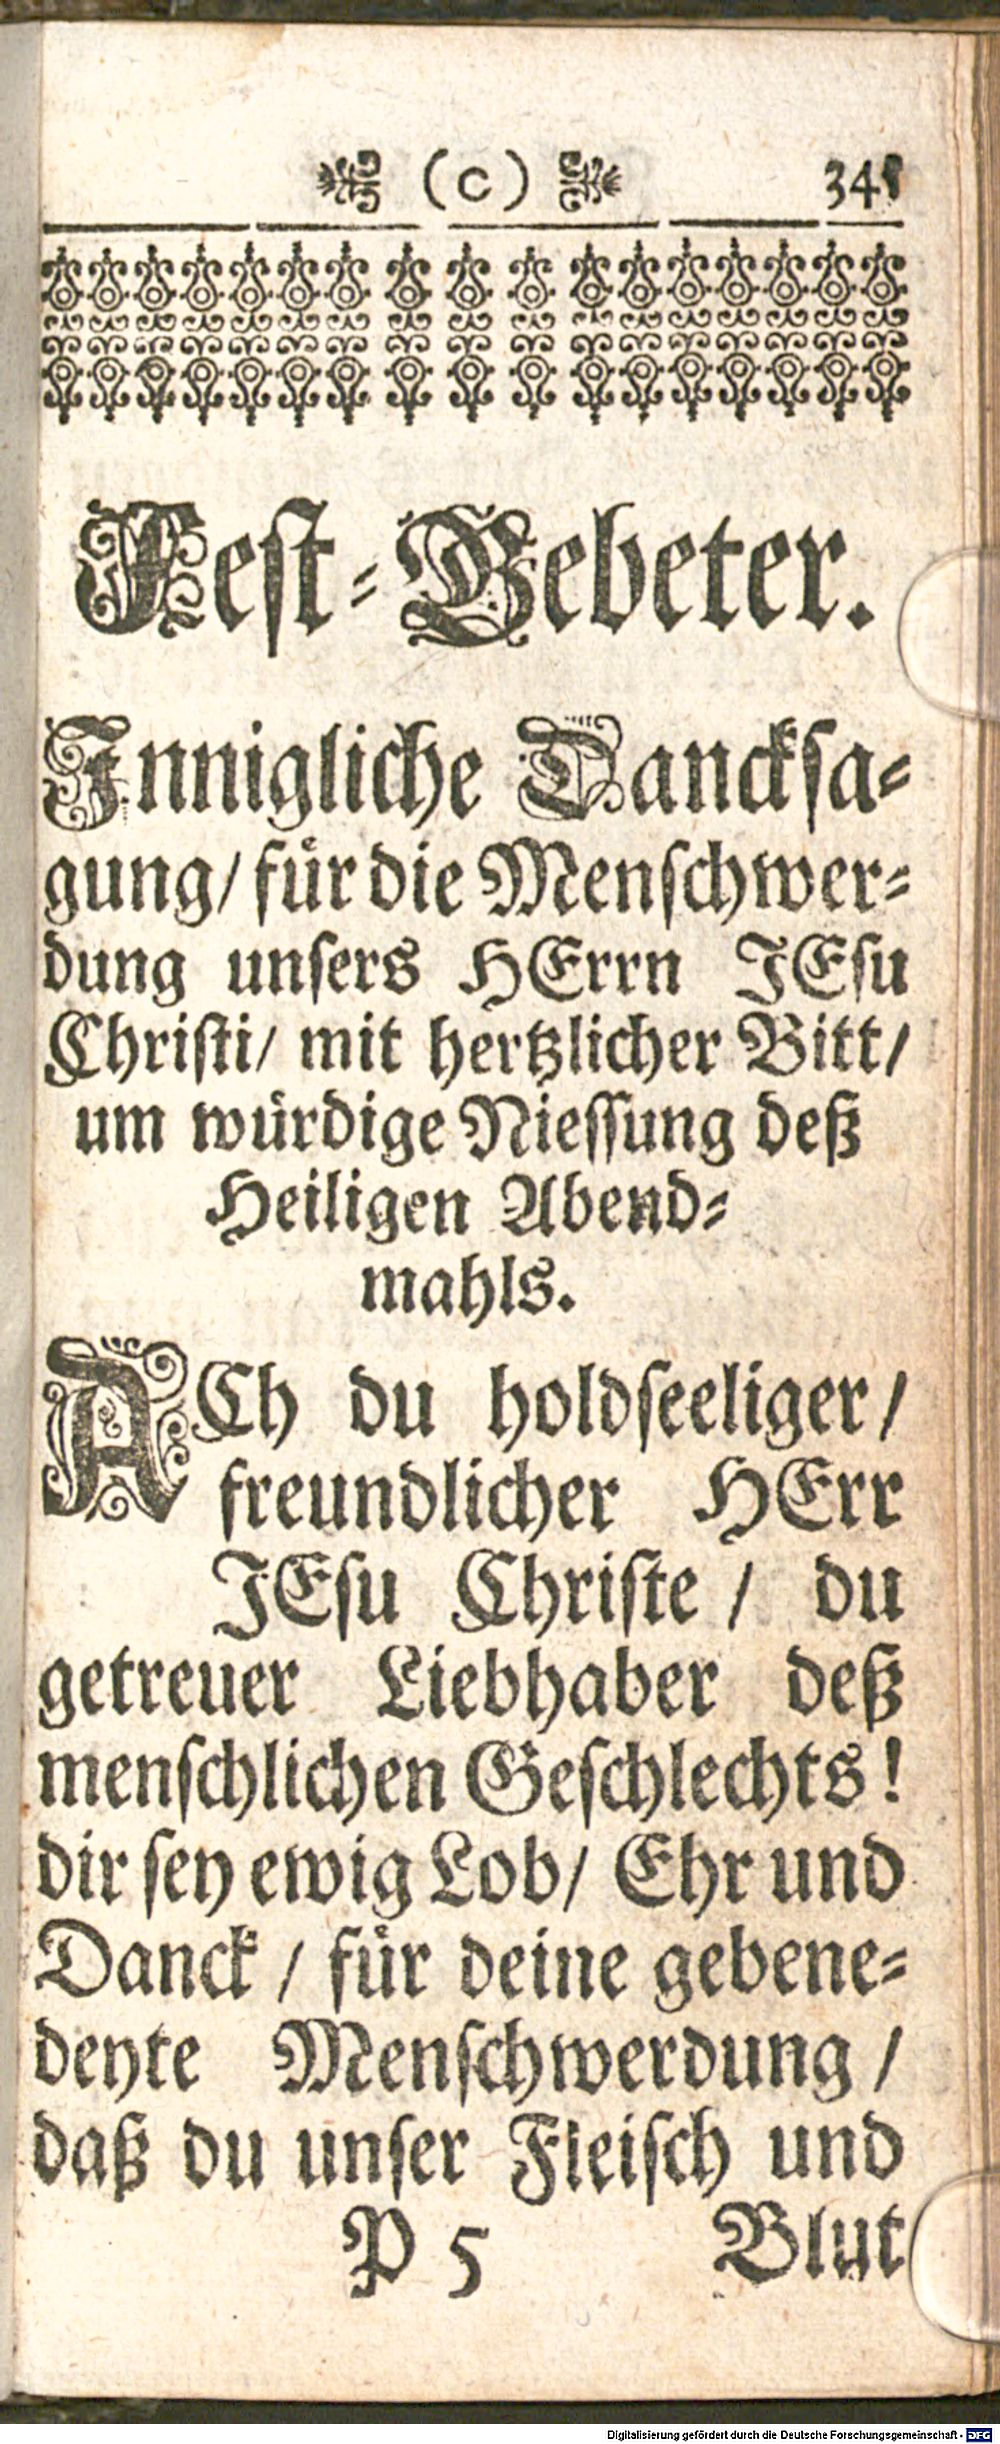 (c) 345
Fest-Gebeter.
Innigliche Dancksa-
gung/ für die Menschwer-
dung unsers HErrn JEsu
Christi/ mit hertzlicher Bitt/
um würdige Niessung deß
Heiligen Abend-
mahls.
ACh du holdseeliger/
freundlicher HErr
JEsu Christe / du
getreuer Liebhaber deß
menschlichen Geschlechts!
dir sey ewig Lob/ Ehr und
Danck / für deine gebene-
deyte Menschwerdung /
daß du unser Fleisch und
P 5 Blut
Digitalisierung gefördert durch die Deutsche Forschungsgemeinschaft - DFG